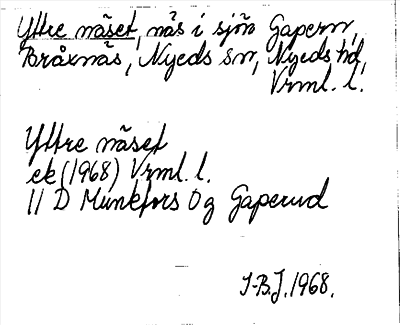 Yttre näset, näs i sjön Gapern,
Bråxnäs, Nyeds sn, Nyeds hd,
Vrml. l.
Yttre näset
ek (1968) Vrml. l.
11 D Munkfors 0 g Gaperud
I-B.J. 1968.